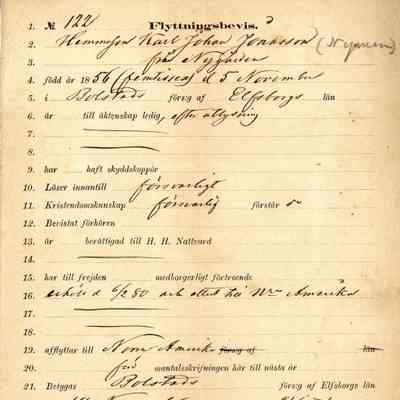 1. № 122 Flyttningsbevis.
2. Hemmason Karl Johan Jonasson (Nyman)
3. från Nygården
4. född år 1856 (femtiosex) d 5 November
5. i Bolstads förs:g af Elfsborgs län
6. är till äktenskap ledig, efter aflysning
7.
8.
9. har haft skyddskoppor
10. Läser innantill försvarligt
11. Kristendomskunskap försvarlig förstår do
12. Bevistat förhören
13. är berättigad till H. H. Nattvard
14.
15. har till frejden medborgerligt förtroende
16. erhöll d 6/2 80 arb attest till N. Amerika
17.
18.
19. afflyttar till Norra Amerika förs:g af län
20. från mantalsskrifningen här till nästa år
21. Betygas Bolstads förs:g af Elfsborgs län